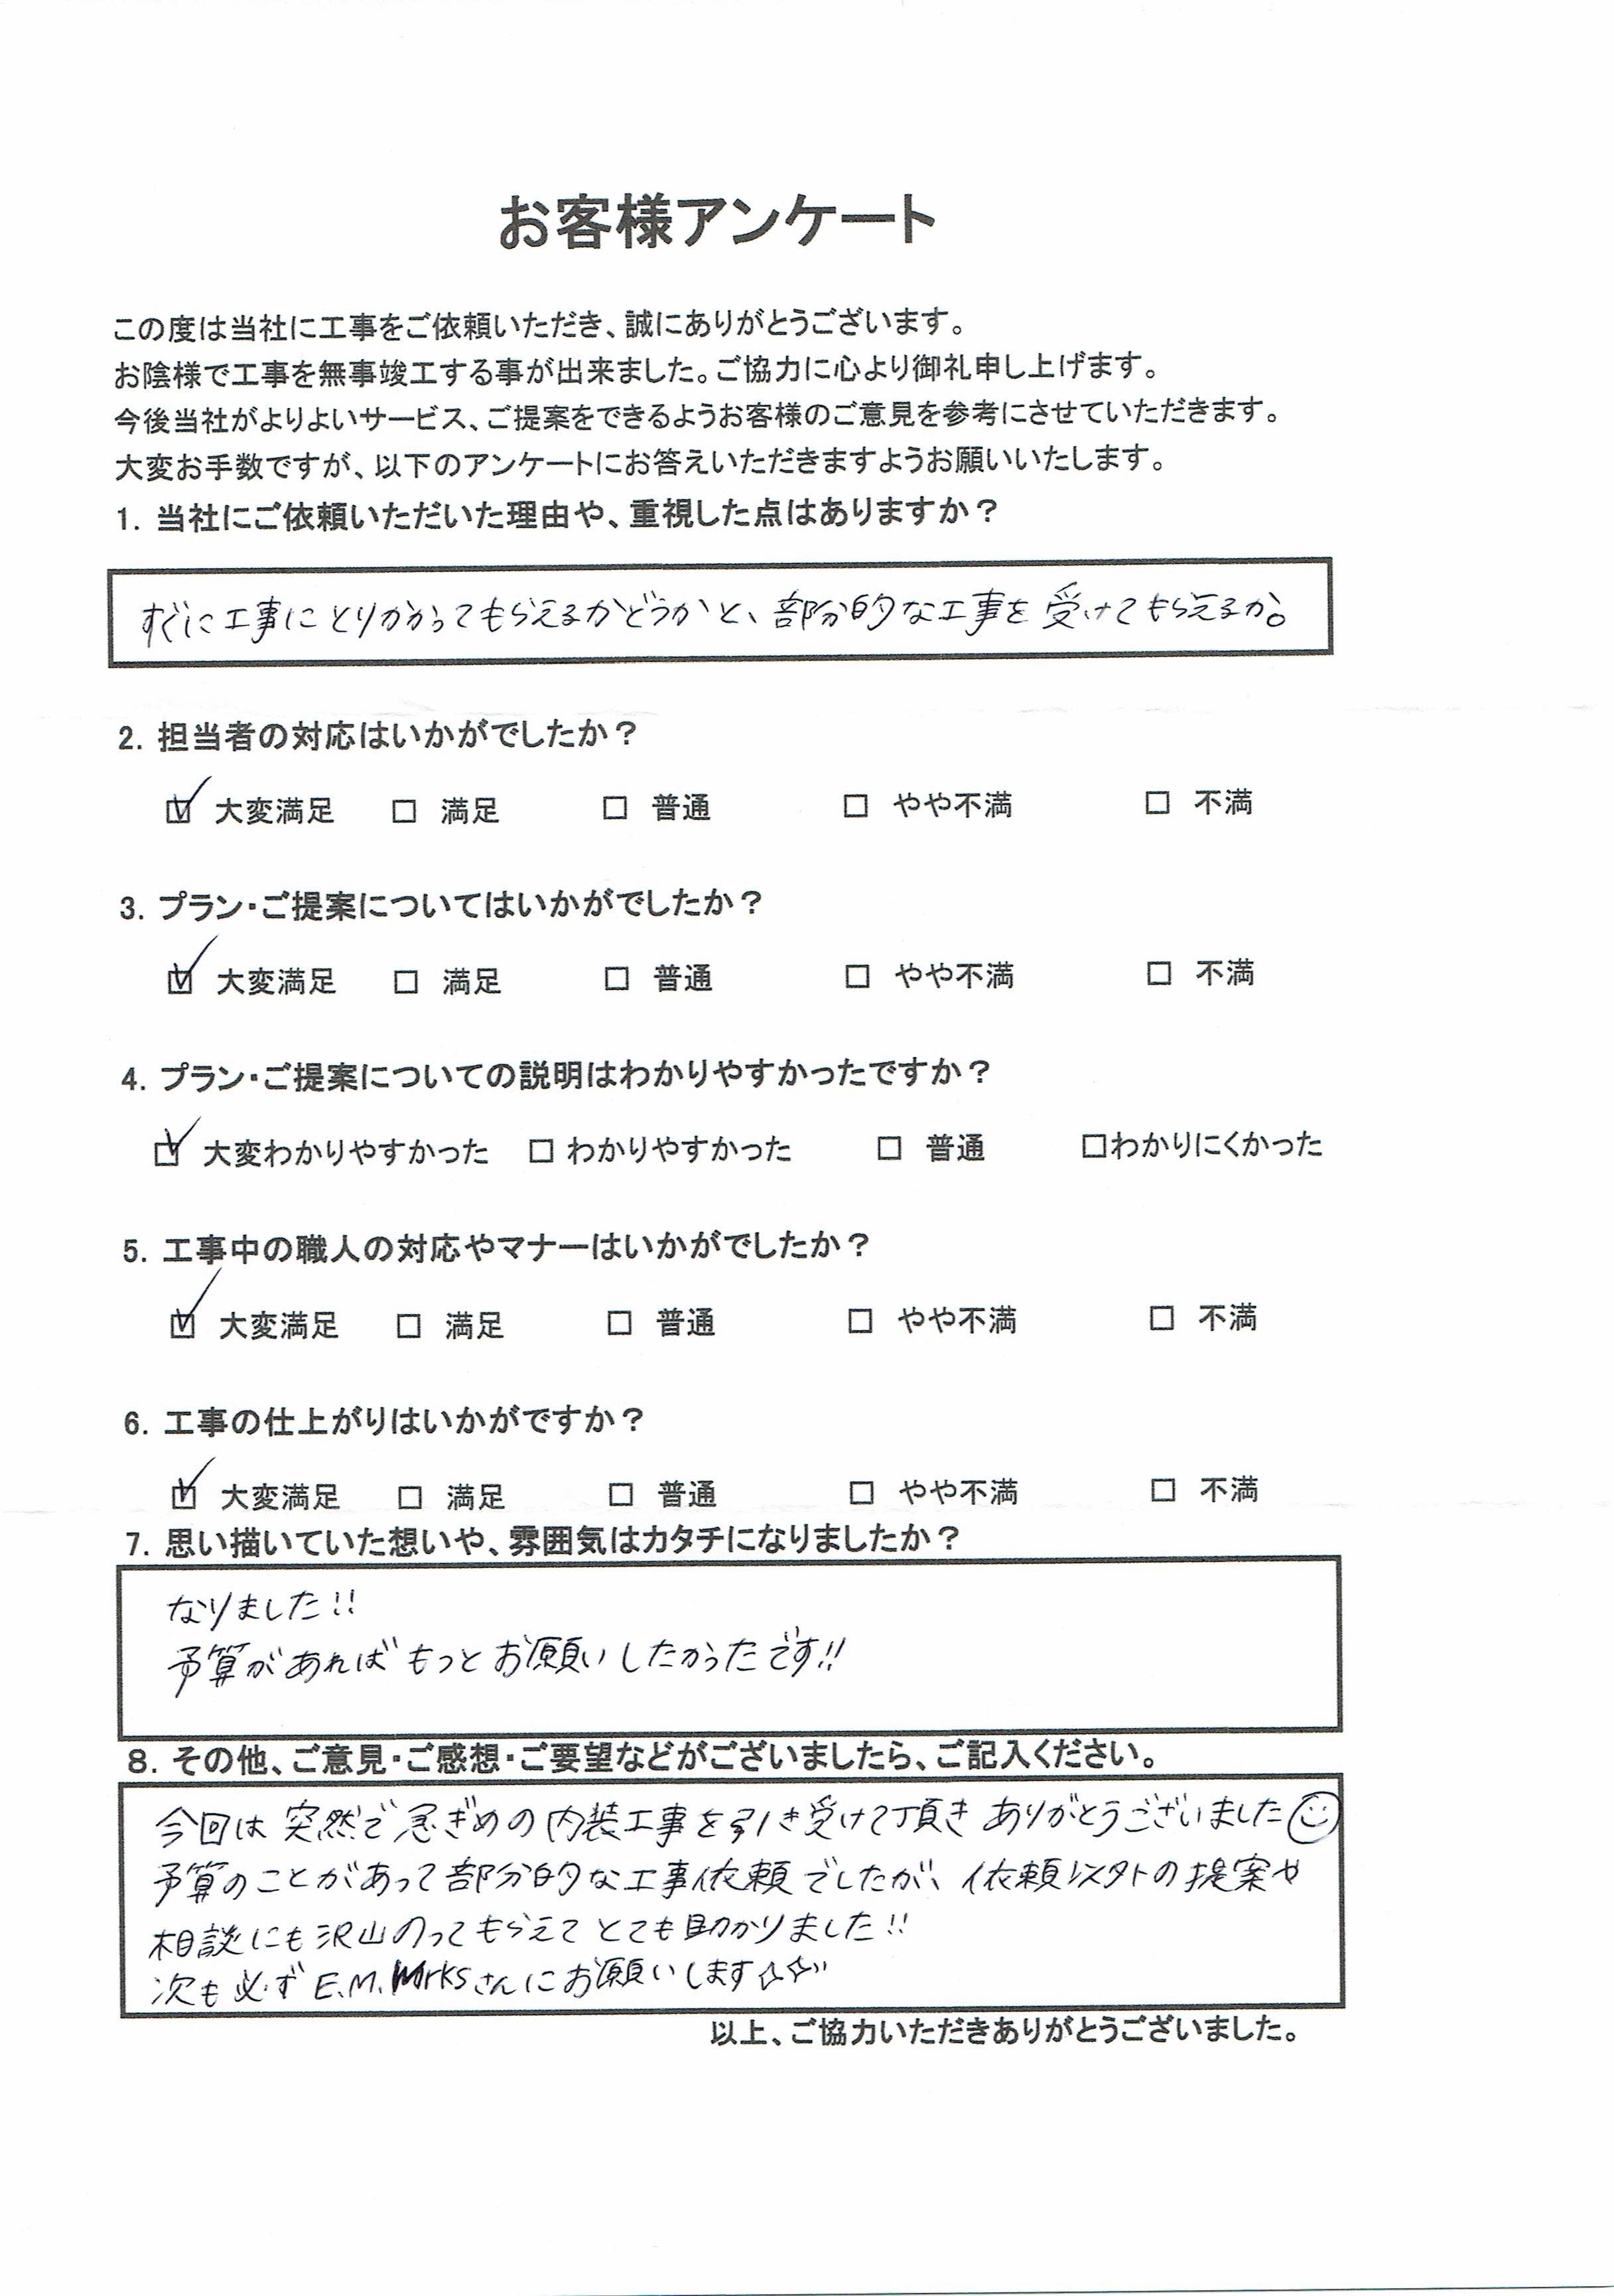 お客様アンケート
この度は当社に工事をご依頼いただき、誠にありがとうございます。
お陰様で工事を無事竣工する事が出来ました。ご協力に心より御礼申し上げます。
今後当社がよりよいサービス、ご提案をできるようお客様のご意見を参考にさせていただきます。
大変お手数ですが、以下のアンケートにお答えいただきますようお願いいたします。
1. 当社にご依頼いただいた理由や、重視した点はありますか？
すぐに工事にとりかかってもらえるかどうかと、部分的な工事を受けてもらえるか。
2. 担当者の対応はいかがでしたか？
☑ 大変満足 □ 満足 □ 普通 □ やや不満 □ 不満
3. プラン・ご提案についてはいかがでしたか？
☑ 大変満足 □ 満足 □ 普通 □ やや不満 □ 不満
4. プラン・ご提案についての説明はわかりやすかったですか？
☑ 大変わかりやすかった □ わかりやすかった □ 普通 □わかりにくかった
5. 工事中の職人の対応やマナーはいかがでしたか？
☑ 大変満足 □ 満足 □ 普通 □ やや不満 □ 不満
6. 工事の仕上がりはいかがですか？
☑ 大変満足 □ 満足 □ 普通 □ やや不満 □ 不満
7. 思い描いていた想いや、雰囲気はカタチになりましたか？
なりました!!
予算があればもっとお願いしたかったです!!
8. その他、ご意見・ご感想・ご要望などがございましたら、ご記入ください。
今回は突然で急ぎめの内装工事を引き受けて頂きありがとうございました☺
予算のことがあって部分的な工事依頼でしたが、依頼以外の提案や
相談にも沢山のってもらえてとても助かりました!!
次も必ずE.M.Worksさんにお願いします☆☆
以上、ご協力いただきありがとうございました。